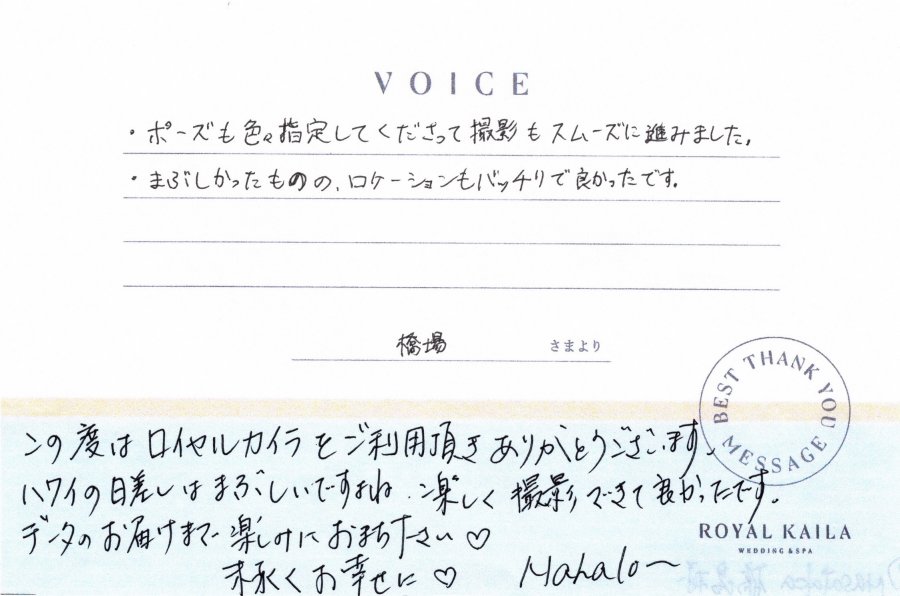 VOICE
・ポーズも色々指定してくださって撮影もスムーズに進みました。
・まぶしかったものの、ロケーションもバッチリで良かったです。
橋場 さまより
BEST THANK YOU MESSAGE
この度はロイヤルカイラをご利用頂きありがとうございます。
ハワイの日差しはまぶしいですよね、楽しく撮影できて良かったです。
データのお届けまで楽しみにおまち下さい♡
末永くお幸せに♡ Mahalo〜
ROYAL KAILA
WEDDING & SPA